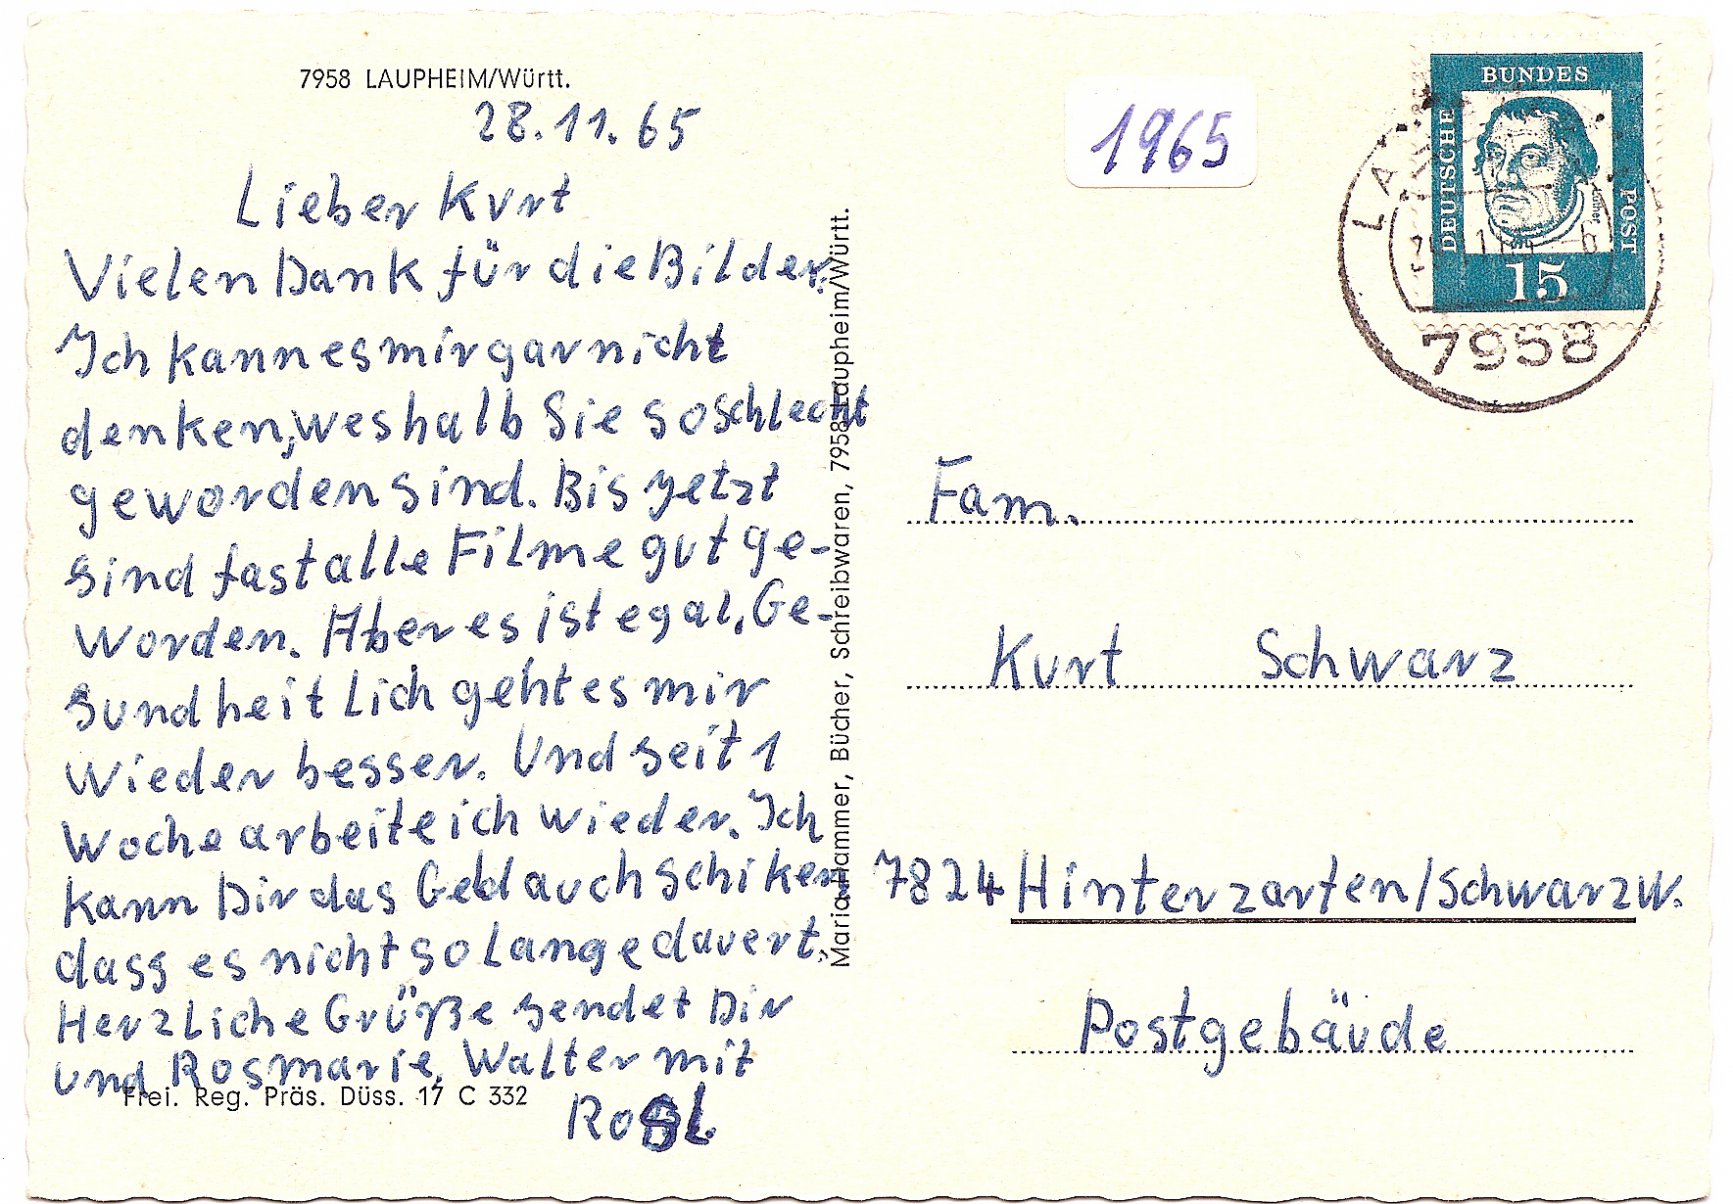 7958 LAUPHEIM/Württ.
28.11.65
Lieber Kurt
Vielen Dank für die Bilder.
Ich kann es mir gar nicht
denken, weshalb Sie so schlecht
geworden sind. Bis yetzt
sind fast alle Filme gut ge-
worden. Aber es ist egal. Ge-
sundheitlich geht es mir
wieder besser. Und seit 1
Woche arbeite ich wieder. Ich
kann Dir das Geld auch schiken
dass es nicht so lange dauert.
Herzliche Grüße sendet Dir
und Rosmarie, Walter mit
Rosl.
Frei. Reg. Präs. Düss. 17 C 332
Maria Hammer, Bücher, Schreibwaren, 7958 Laupheim/Württ.
1965
BUNDES
DEUTSCHE
POST
15
Luther
LA
7958
Fam.
Kurt Schwarz
7824 Hinterzarten/Schwarzw.
Postgebäude